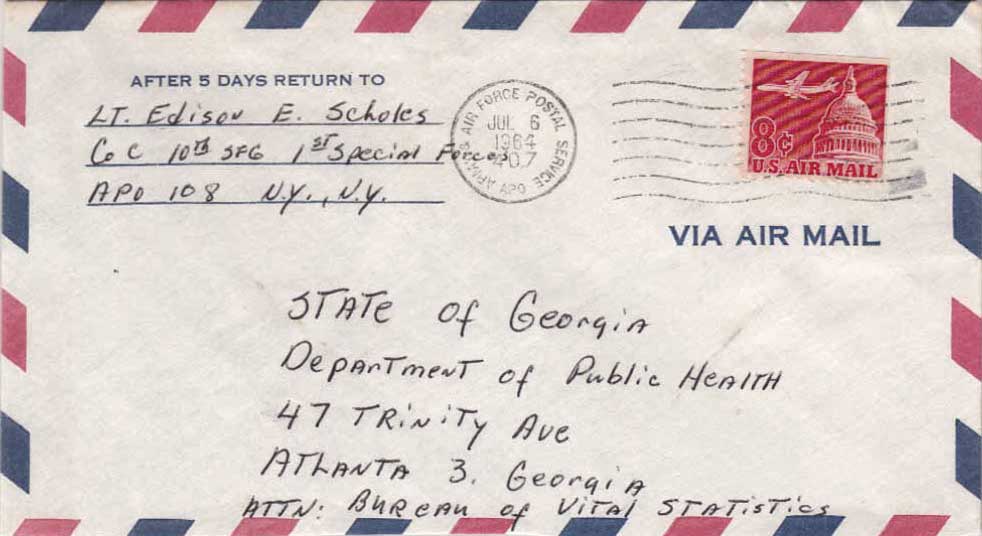 AFTER 5 DAYS RETURN TO
LT. Edison E. Scholes
Co C 10TH SFG 1ST Special Forces
APO 108 N.Y., N.Y.
ARMY & AIR FORCE POSTAL SERVICE
JUL 6
1964
407
APO
8¢
U.S. AIR MAIL
VIA AIR MAIL
STATE of Georgia
Department of Public Health
47 Trinity Ave
Atlanta 3. Georgia
ATTN: Bureau of Vital Statistics